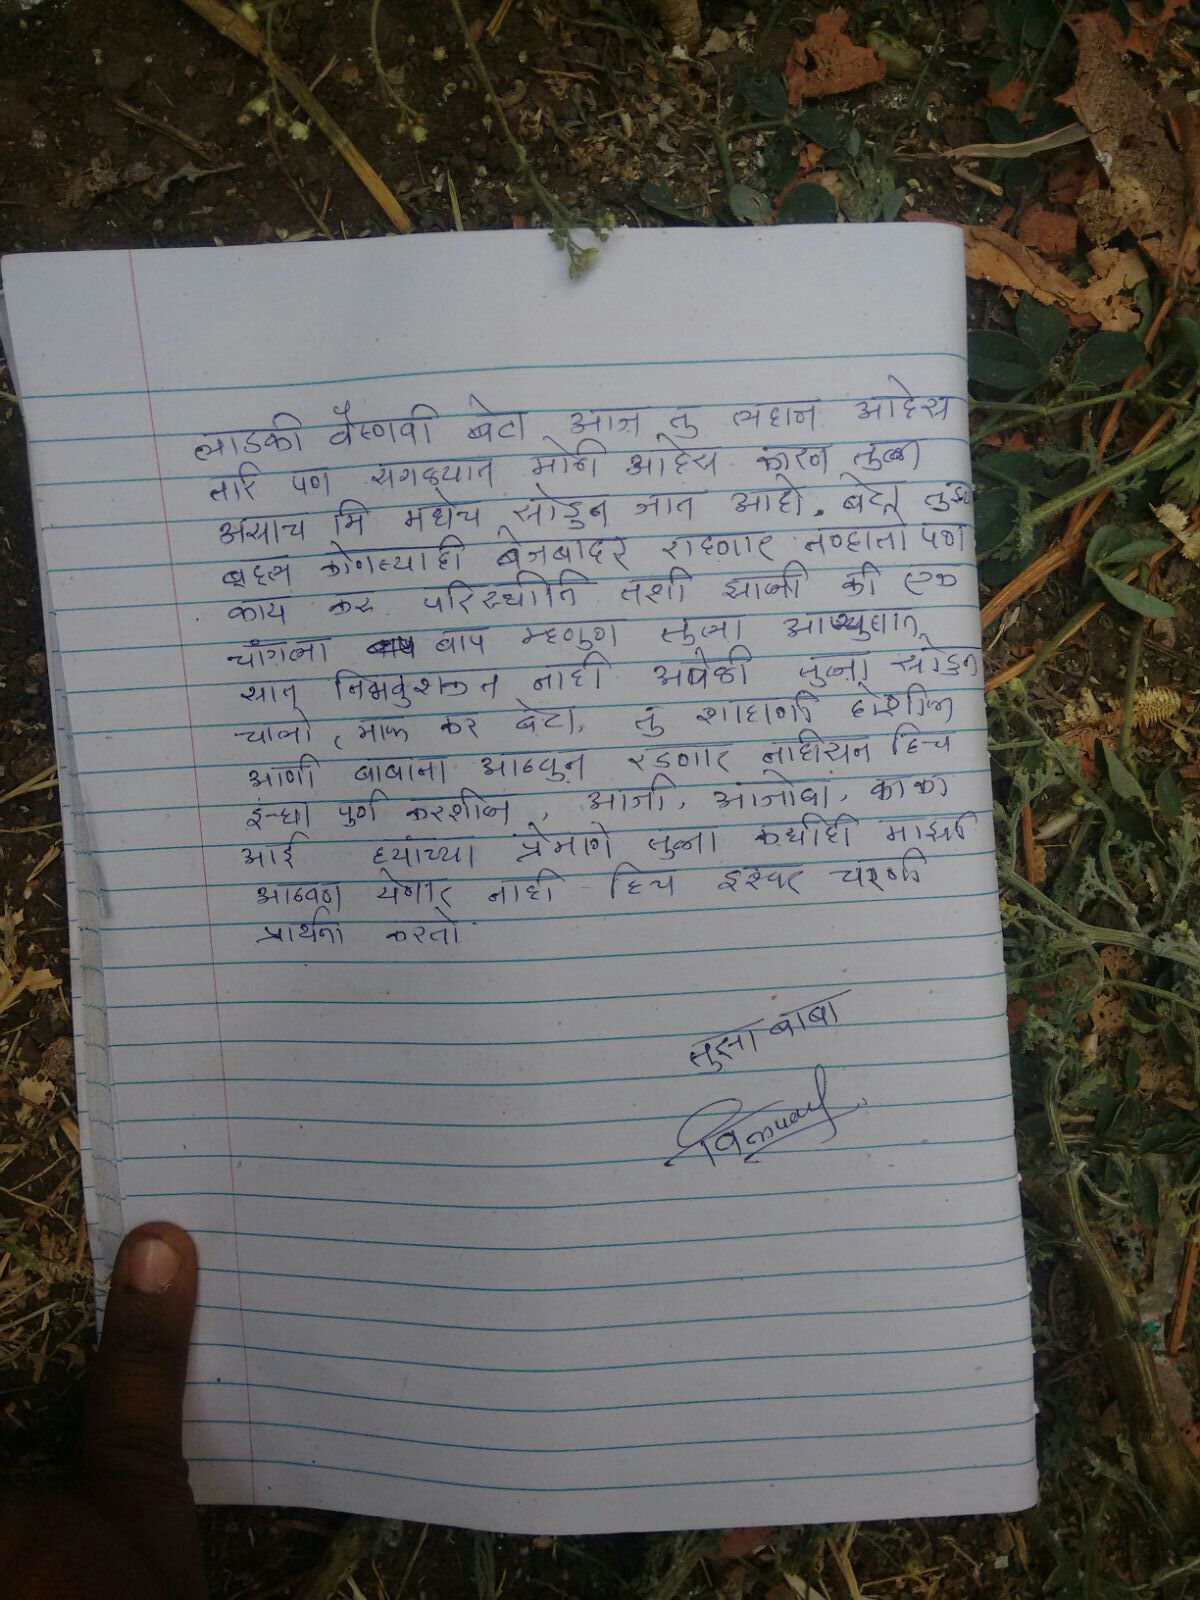 लाडकी वैष्णवी बेटा आज तु लहान आहेस
तरि पण सगळ्यात मोठी आहेस कारन तुला
असाच मि मधेच सोडुन जात आहो. बेटा तुझ्या
बद्दल कोणत्याही बेजबादार राहणार नव्हतो पण
काय करु परिस्थीति तशी झाली की एक
चांगला बाप म्हणुण तुला आयुष्यात
साथ निभवुशकत नाही अवेळी तुला सोडुन
चालो, माफ कर बेटा, तु शाहाणी होशील
आणी बाबाना आठवुन रडणार नाहीसच हिच
इच्छा पुर्ण करशील, आजी, आजोबा, काका
आई ह्यांच्या प्रेमाणे तुला कधीही माझी
आठवण येणार नाही हिच इश्वर चरणी
प्रार्थना करतो
तुझा बाबा